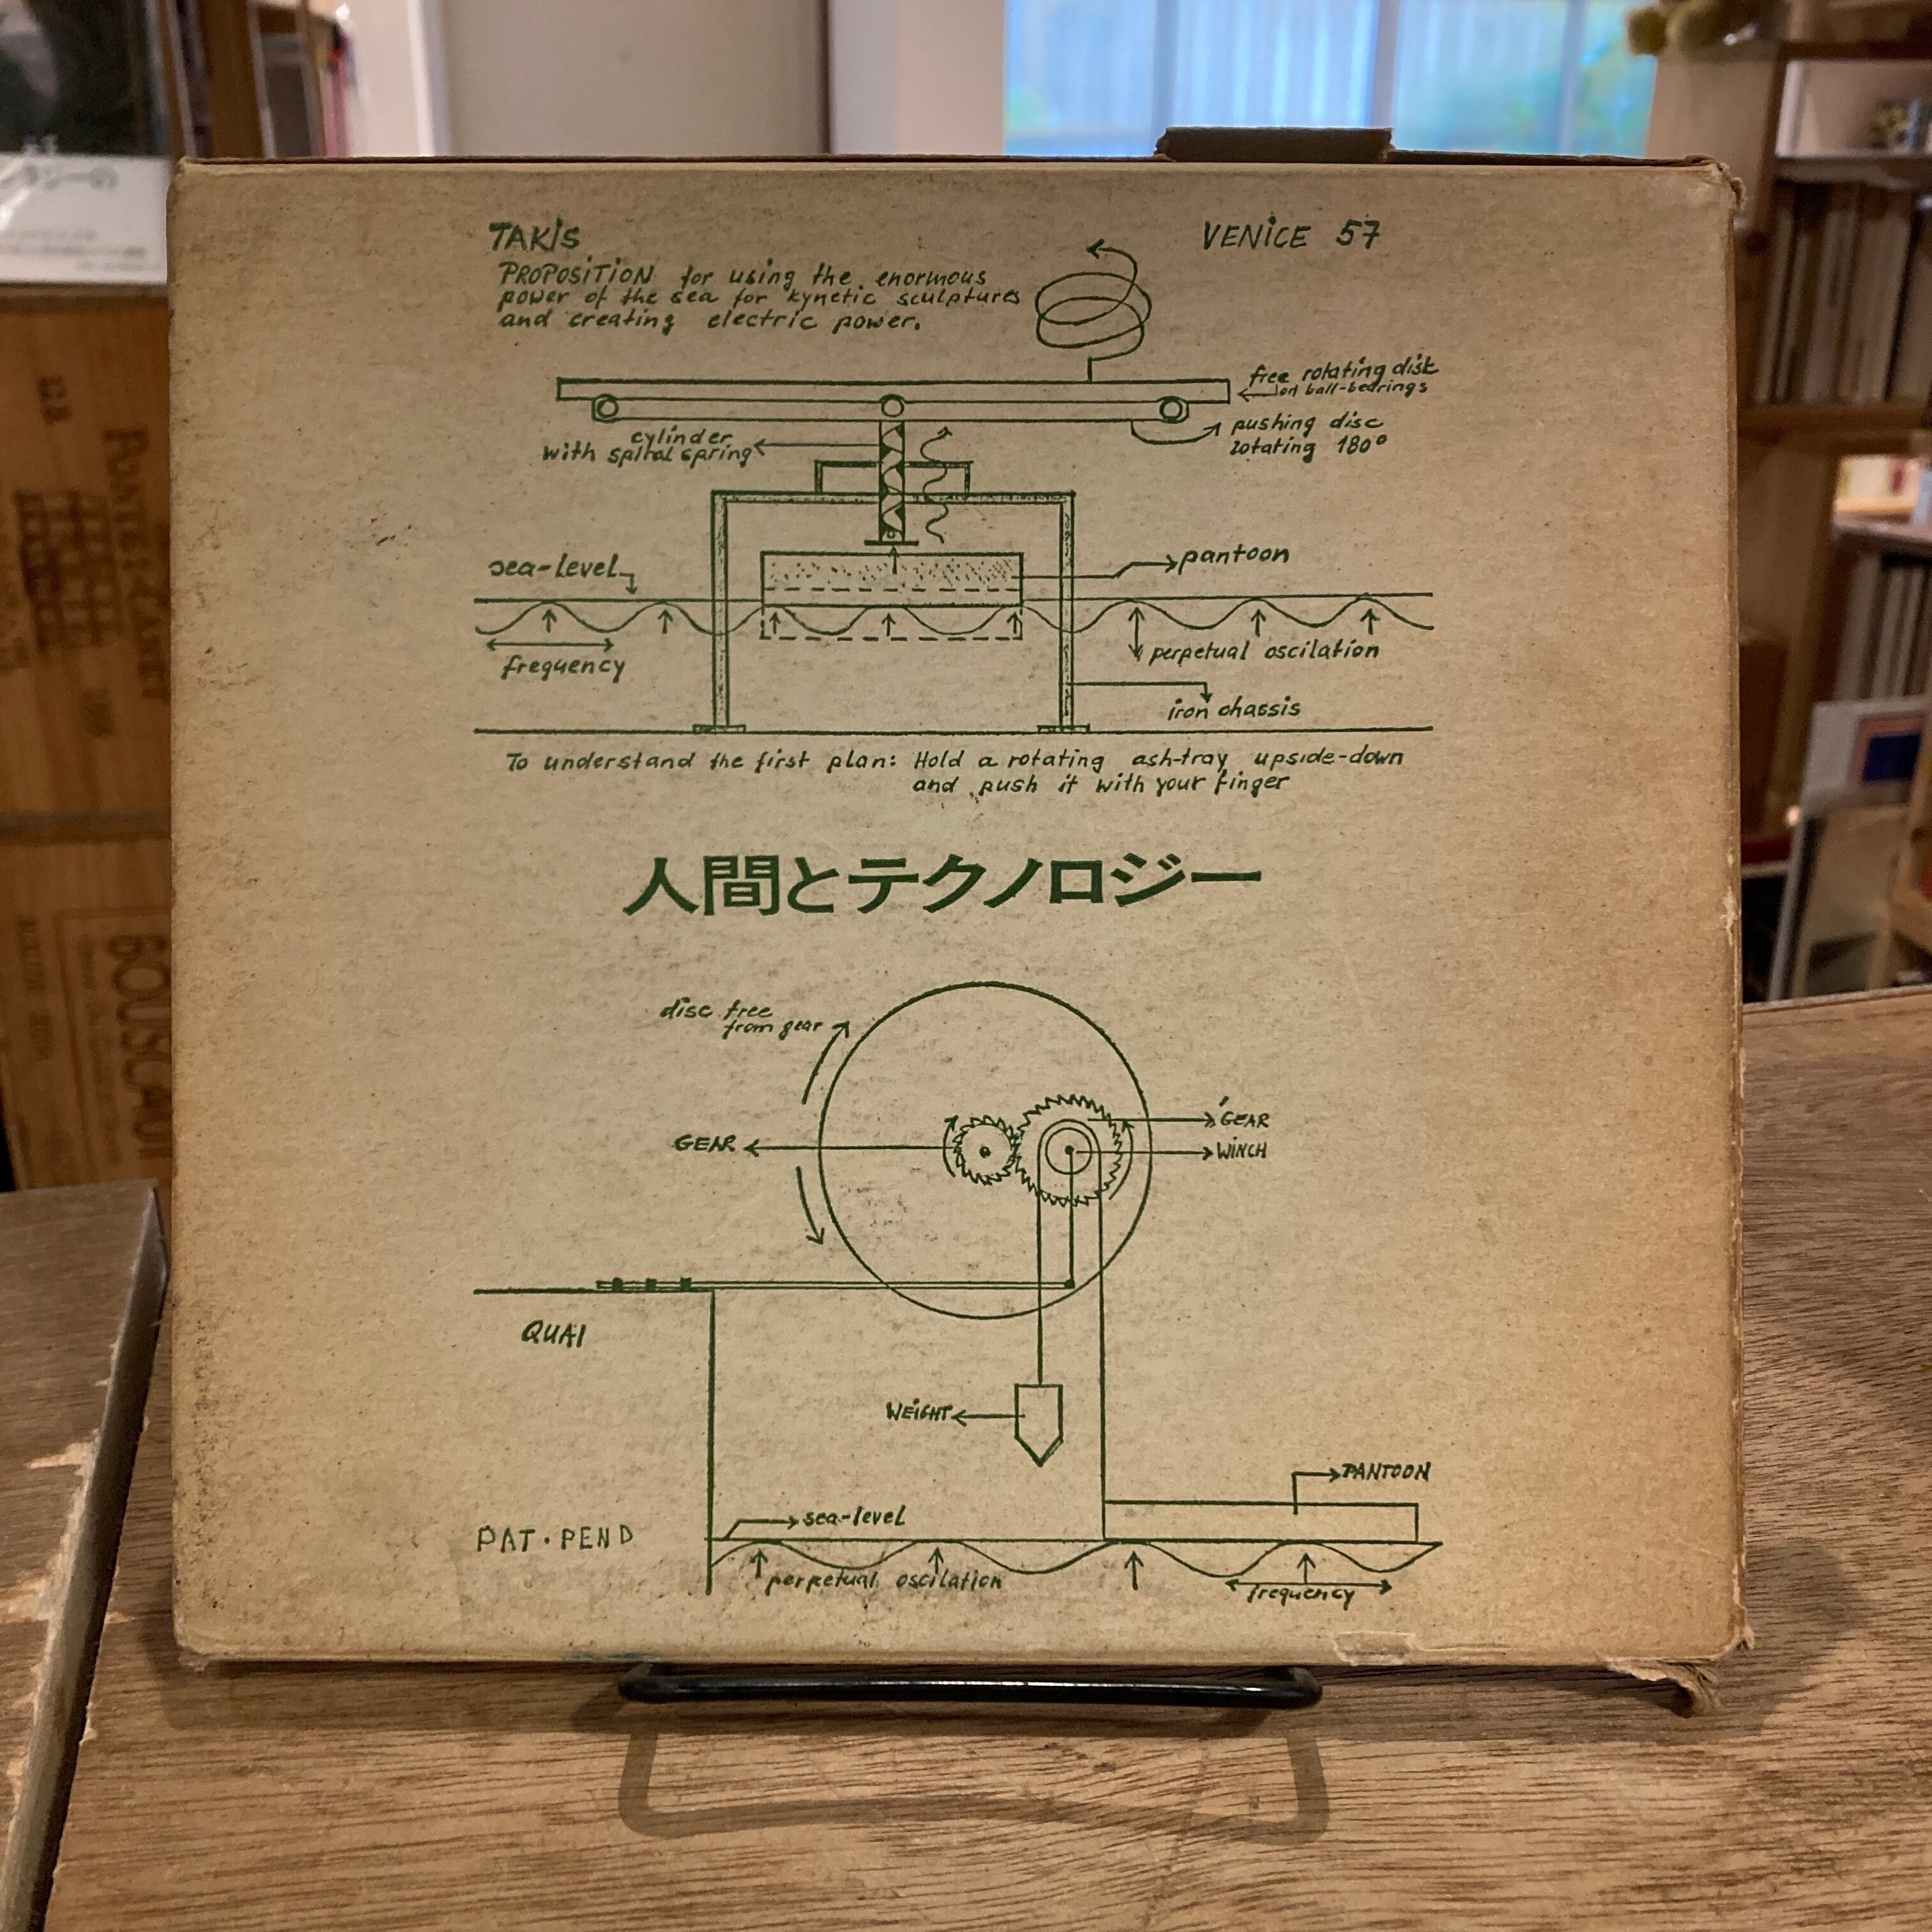 TAKIS
VENICE 57
PROPOSITION for using the enormous
power of the sea for kynetic sculptures
and creating electric power.
free rotating disk
on ball-bearings
pushing disc
rotating 180°
cylinder
with spiral spring
sea-level
pantoon
frequency
perpetual oscilation
iron chassis
To understand the first plan: Hold a rotating ash-tray upside-down
and push it with your finger
人間とテクノロジー
disc free
from gear
GEAR
GEAR
WINCH
QUAI
WEIGHT
PANTOON
sea-level
PAT·PEND
perpetual oscilation
frequency
PONTET-CANET